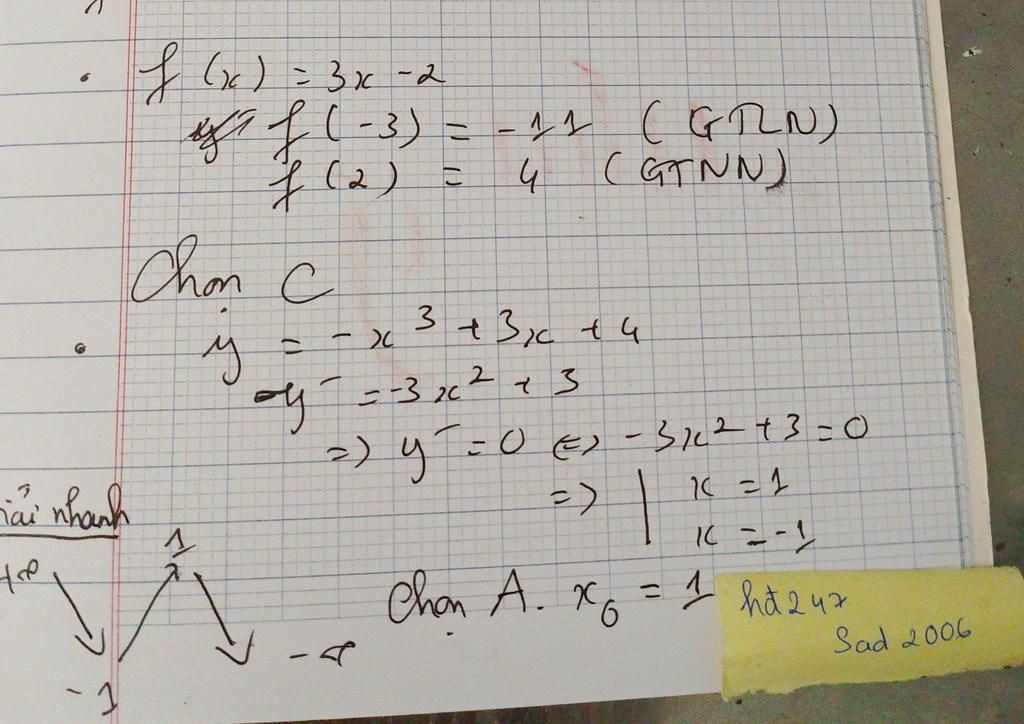 f(x) = 3x - 2
f(-3) = -11 (GTLN)
f(2) = 4 (GTNN)
Chọn C
y = -x³ + 3x + 4
y' = -3x² + 3
=> y' = 0 <=> -3x² + 3 = 0
=> | x = 1
x = -1
giải nhanh
+∞ 1
-1 -∞
Chọn A. x₀ = 1
hđ247
Sad 2006